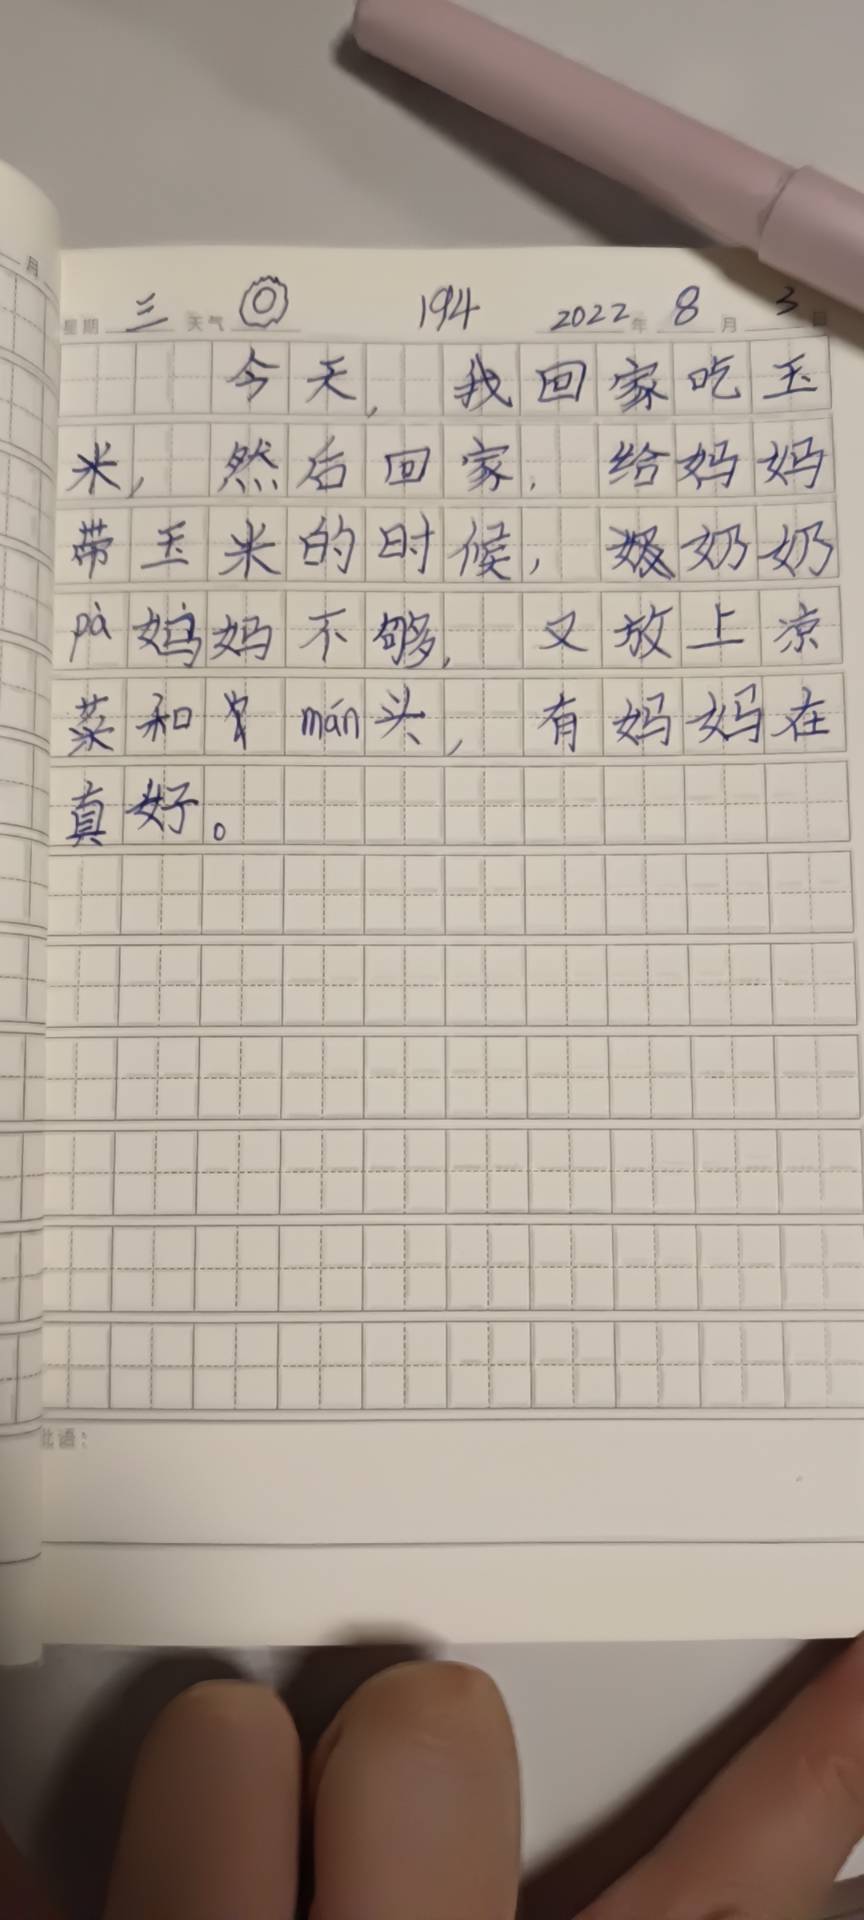 月
星期 三 天气 194 2022年 8月 3日
今天，我回家吃玉
米，然后回家，给妈妈
带玉米的时候，奶奶
pà妈妈不够，又放上凉
菜和mán头，有妈妈在
真好。
批语：